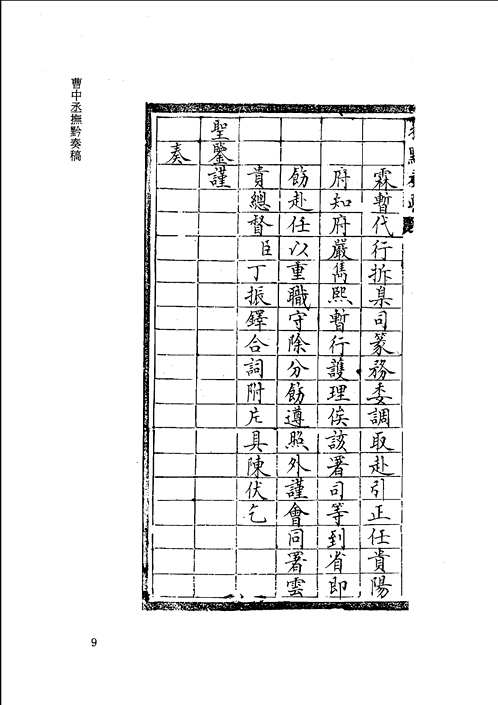 霖暫代行拆臬司篆務委調取赴引正任貴陽
府知府嚴雋熙暫行護理俟該署司等到省即
飭赴任以重職守除分飭遵照外謹會同署雲
貴總督臣丁振鐸合詞附片具陳伏乞
聖鑒謹
奏
曹中丞撫黔奏稿
9